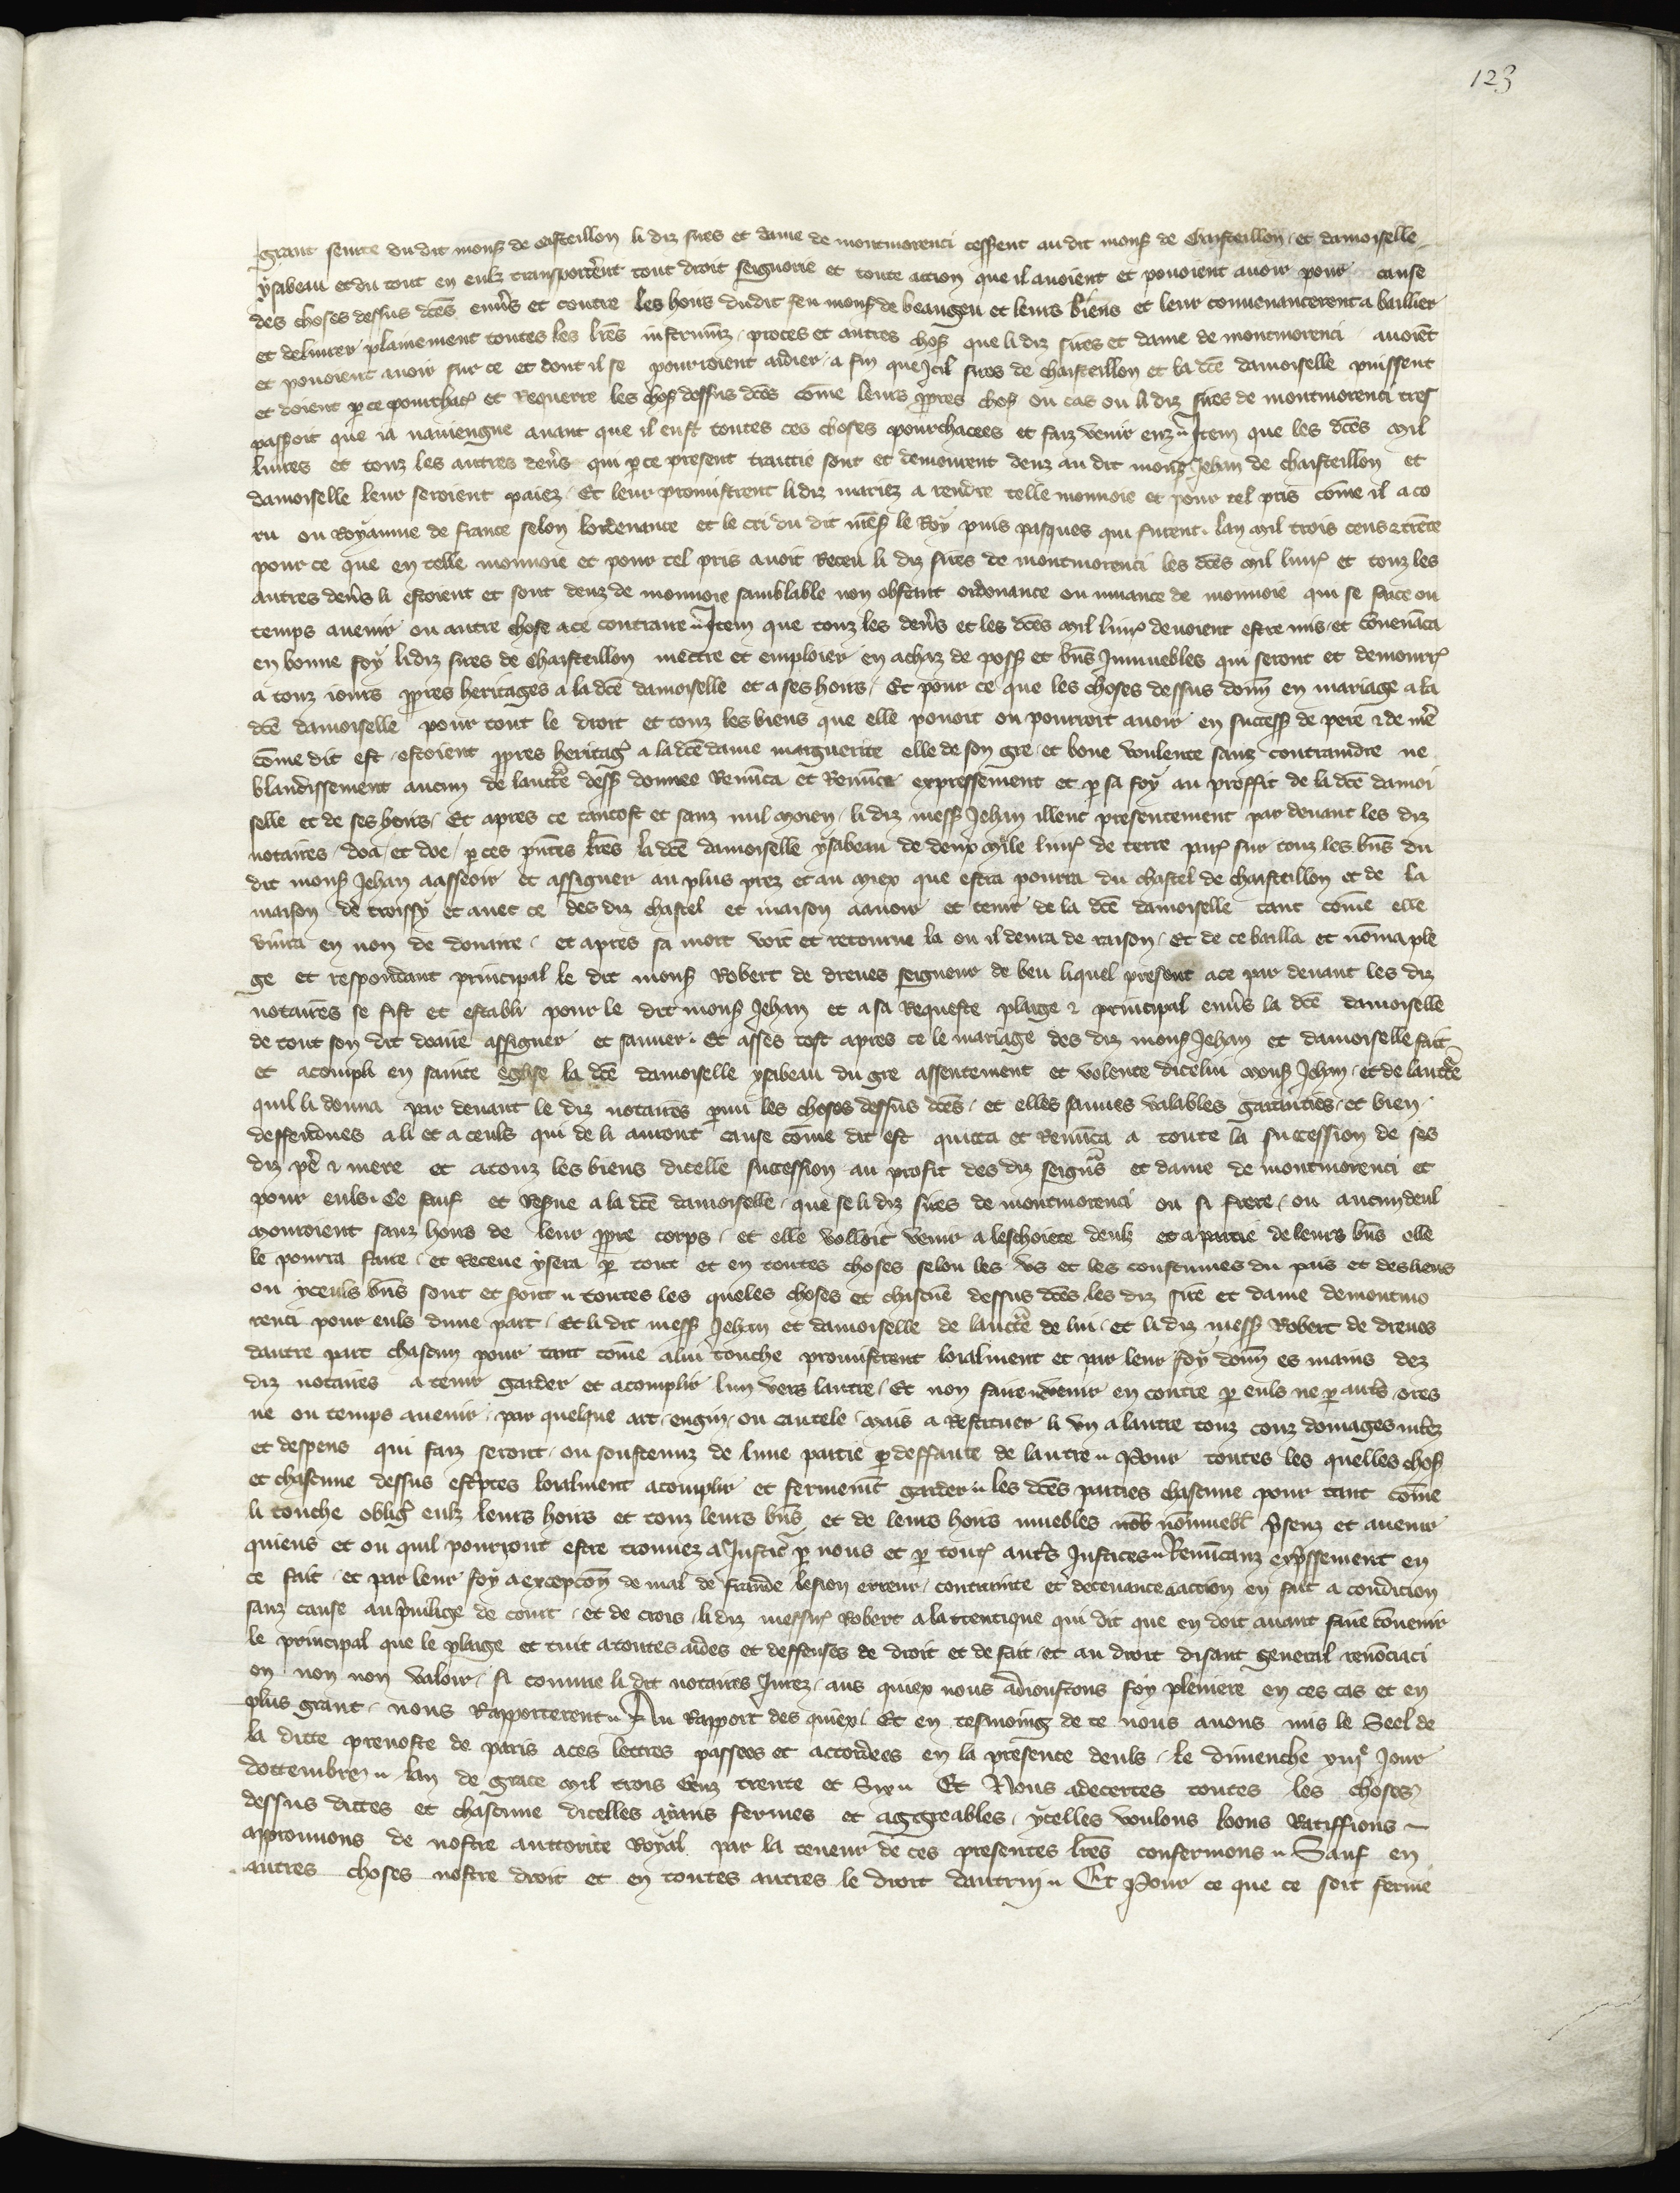 123
grant seurte du dit mons de Chasteillon li diz sires et dame de montmorenci cessent au dit mons de Chasteillon et damoiselle
ysabeau et du tout en eulz transportèrent tout droit seignorie et toute action que il avoient et povoient avoir pour cause
des choses dessus dces envs et contre les hoirs du dit feu mons de beaugeu et leurs biens et leur convenancerent a baillier
et delivrer plainement toutes les lres instrumz proces et autres chos que li diz sires et dame de montmorenci avoiēt
et povoient avoir sur ce et dont il se pourroient aidier a fin que Icil sires de chasteillon et la dce damoiselle puissent
et doient p ce pourchac et Requerre les chos dessus dces cōme leurs ppres chos ou cas ou li diz sires de montmorenci tres
passoit que ia naviengne avant que il eust toutes ces choses pourchacees et faiz venir enz Item que les dces mil
livres et touz les autres devs qui p ce present traictie sont et demourent deuz au dit mons Jehan de chasteillon et
damoiselle leur seroient paiez Et leur promistrent li diz mariez a rendre telle monnoie et pour tel pris cōme il a co
ru ou Royaume de france selon lordenance et le cri du dit mes le Roy puis pasques qui furent lan mil trois cens & trēte
pour ce que en telle monnoie et pour tel pris avoit Receu li diz sires de montmorenci les dces mil livr et touz les
autres devs li estoient et sont deuz de monnoie samblable non obstant ordenance ou muance de monnoie qui se face ou
temps avenir ou autre chose a ce contraire Item que touz les devs et les dces mil livr devoient estre mis et cōvenāca
en bonne foy li diz sires de Chasteillon mettre et emploier en achaz de poss et bns Inmuebles qui seront et demourr
a touz iours ppres heritages a la dce damoiselle et a ses hoirs Et pour ce que les choses dessus donn en mariage a la
dce damoiselle pour tout le droit et touz les biens que elle povoit ou pourroit avoir en success de pere & de mē
cōme dit est estoient ppres heritag a la dce dame marguerite elle de son gre et bone voulente sanz contraindre ne
blandissement aucun de lauctē dess donnee Renūca et Renūce expressement et p sa foy au proffit de la dce damoi
selle et de ses hoirs Et apres ce tantost et sanz nul moien li diz mess Jehan illeuc presentement par devant les diz
notaires doa et doe p ces pntes lres la dce damoiselle ysabeau de deux mile livr de terre pris sur touz les bns du
dit mons Jehan a asseoir et assigner au plus prez et au miex que estra pourra du chastel de chasteillon et de la
maison de troissy et avec ce des diz chastel et maison a avoir et tenir de la dce damoiselle tant cōme elle
vivra en non de douaire et apres sa mort voit et retourne la ou il devra de raison Et de ce bailla et nōma ple
ge et respondant principal le dit mons Robert de dreues seigneur de beu liquel present a ce par devant les diz
notaires se fist et establi pour le dit mons Jehan et a sa Requeste plaige & principal envs la dce damoiselle
de tout son dit doaire assigner et sauver Et asses tost apres ce le mariage des diz mons Jehan et damoiselle fait
et acompli en sainte eglise la dce damoiselle ysabeau du gre assentement et volente dicelui mons Jehan et de lauctē
quil li donna par devant le diz notaires pmi les choses dessus dces et elles sauves valables garanties et bien
deffendues a li et a ceuls qui de li auront cause cōme dit est quitta et Renūca a toute la succession de ses
diz pē & mere et a touz les biens dicelle succession au profit des diz seigns et dame de montmorenci et
pour euls Ce sauf et Reserve a la dce damoiselle que se li diz sires de montmorenci ou si frere ou aucun deul
mouroient sanz hoirs de leur ppre corps et elle volloit venir a leschoiete deulz et a partie de leurs bns elle
le pourra faire et Receue y sera p tout et en toutes choses selon les us et les coustumes du pais et des lieus
ou yceuls bns sont et sont toutes les queles choses et chascune dessus dces les diz sire et dame de montmo
renci pour euls dune part Et li dit mess Jehan et damoiselle de lauctē de lui et li diz mess Robert de dreues
dautre part chascun pour tant cōme a lui touche promistrent loialment et par leur foy donn es mains dez
diz notaires a tenir garder et acomplir lun vers lautre Et non faire venir en contre p euls ne p auts ores
ne ou temps avenir par quelque art engin ou cautele mais a Restituer li un a lautre touz couz domages intez
et despens qui faiz seront ou soustenuz de lune partie p deffaute de lautre Pour toutes les quelles chos
et chascune dessus escptes loialment acomplir et fermenit garder les dces parties chascune pour tant cōme
li touche oblig eulz leurs hoirs et touz leurs bns et de leurs hoirs muebles nōb nōmuebl psenz et avenir
quiens et ou quil pourront estre trouvez a Justic p nous et p tout auts Justices Renūcanz expssement en
ce fait et par leur foy a excepcōn de mal de fraude lesion erreur contrainte et decevance a action en fait a condicion
sanz cause au pvilige de court et de crois li diz messir Robert a lattentique qui dit que en doit avant faire cōvenir
le principal que le plaige et tuit a toutes aides et deffenses de droit et de fait et au droit disant general renōciaci
on non non valoir si comme li dit notaires Jurez aus quiex nous adioustons foy pleniere en ces cas et en
plus grant nous Rapporterent Au Rapport des quiex Et en tesmoing de ce nous avons mis le Seel de
la ditte prevoste de paris a ces lettres passees et accordees en la presente deuls le dimenche xiiie Jour
doctembre lan de grace mil trois Cenz trente et Six Et Nous adecertes toutes les choses
dessus dittes et chascune dicelles ayans fermes et aggreables ycelles voulons loons Ratiffions
approuvons de nostre auttorite Royal par la teneur de ces presentes lres confermons Sauf en
autres choses nostre droit et en toutes autres le droit dautruy Et Pour ce que ce soit ferme